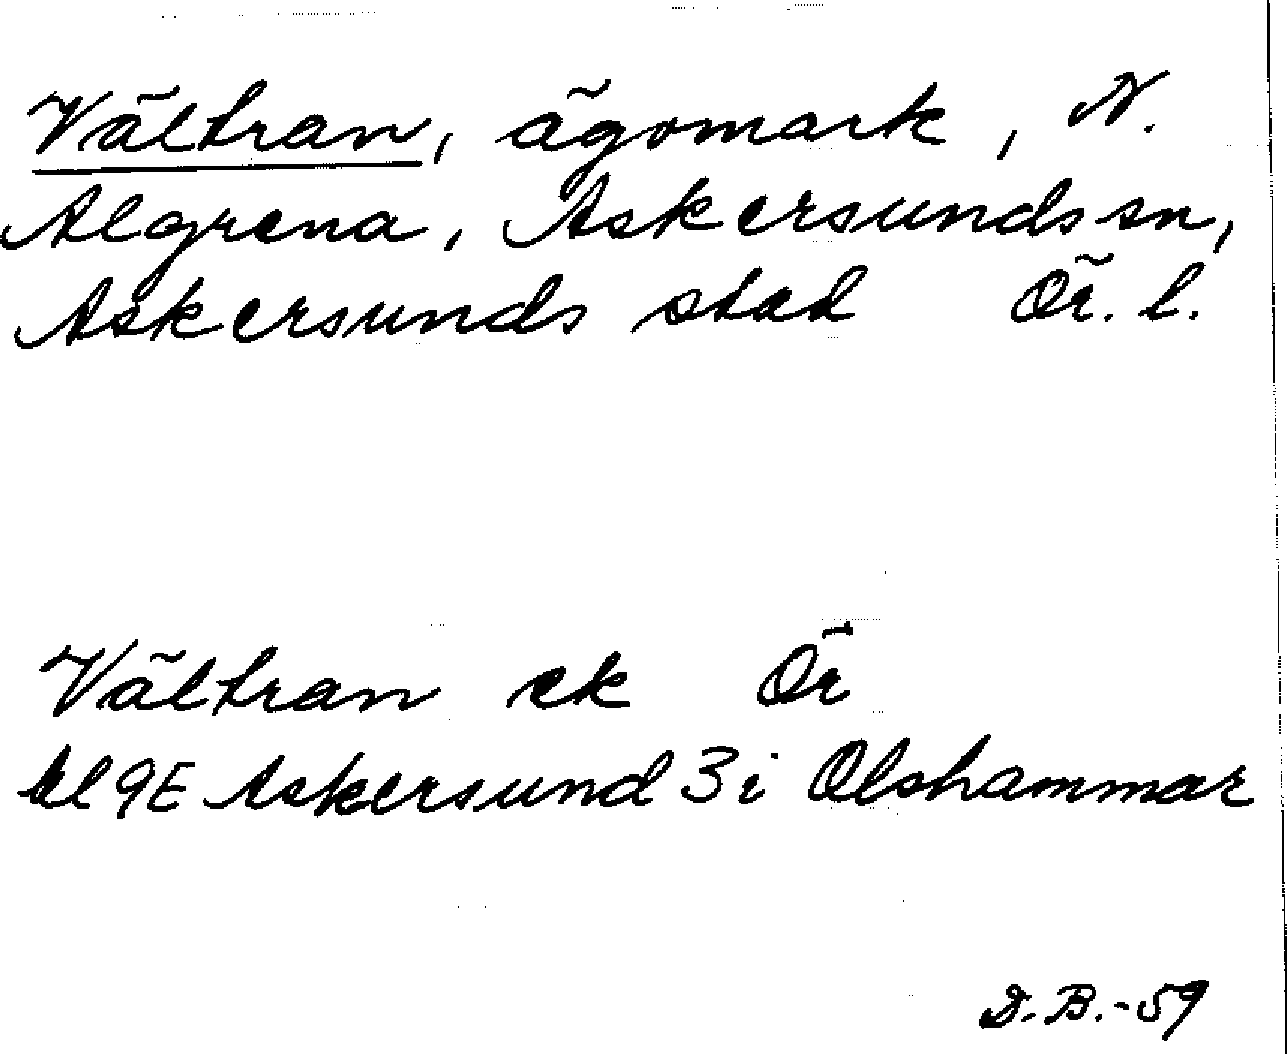 Vältran, ägomark, N.
Algrena, Askersunds sn,
Askersunds stad Ör. l.
Vältran ek Ör
bl 9E Askersund 3i Olshammar
D.B.-59